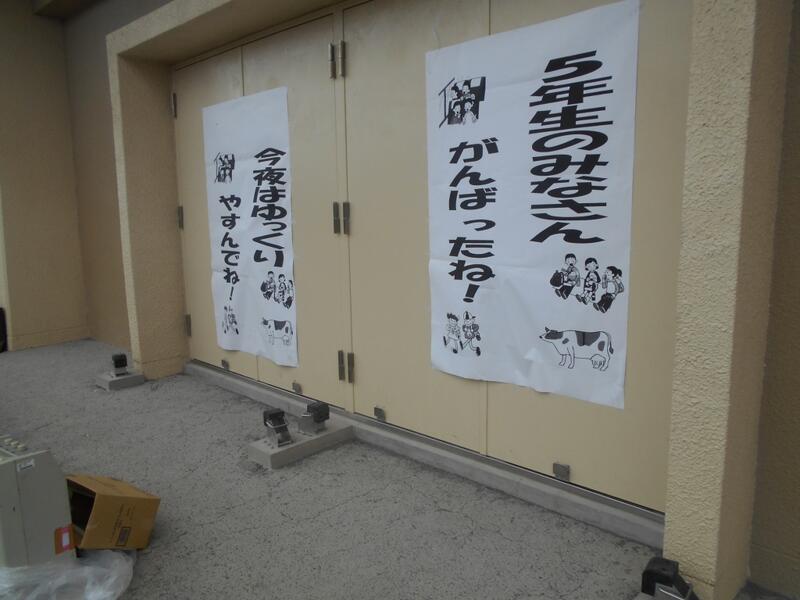 5年生のみなさん
がんばったね！
今夜はゆっくり
やすんでね！